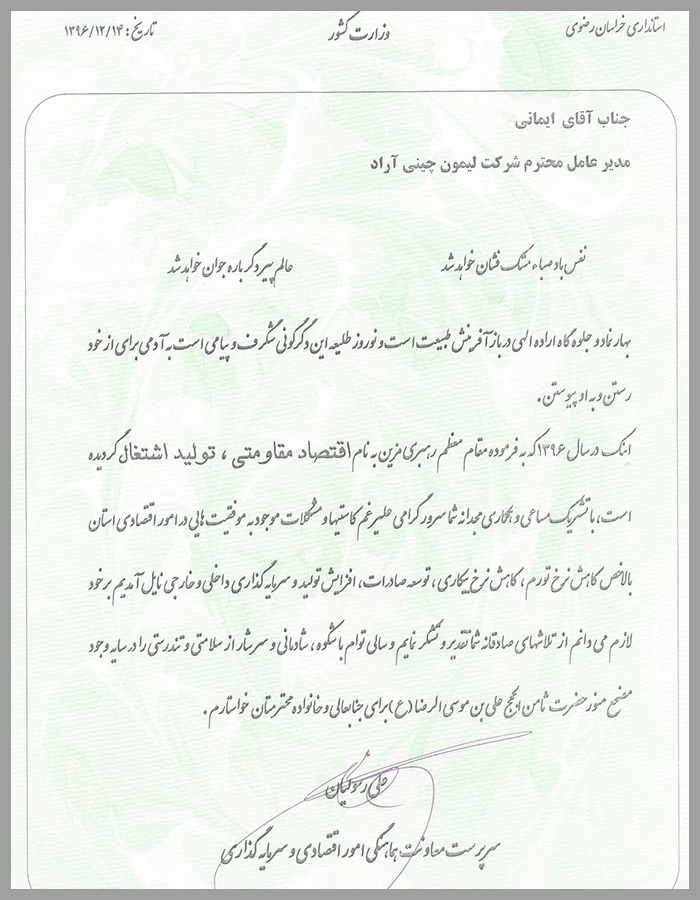 استانداری خراسان رضوی
وزارت کشور
تاریخ: ۱۳۹۶/۱۲/۱۴
جناب آقای ایمانی
مدیر عامل محترم شرکت لیمون چینی آراد
نفس باد صباء مشک فشان خواهد شد عالم پیر دگر باره جوان خواهد شد
بهار نماد و جلوه گاه اراده الهی در باز آفرینش طبیعت است و نوروز طلیعه این دگرگونی شگرف و پیامی است به آدمی برای از خود
رستن و به او پیوستن.
اینک در سال ۱۳۹۶ که به فرموده مقام معظم رهبری مزین به نام اقتصاد مقاومتی ، تولید اشتغال گردیده
است، با تشریک مساعی و همکاری مجدانه شما سرور گرامی علیرغم کاستیها و مشکلات موجود به موفقیت هایی در امور اقتصادی استان
بالاخص کاهش نرخ تورم ، کاهش نرخ بیکاری ، توسعه صادرات، افزایش تولید و سرمایه گذاری داخلی و خارجی نایل آمدیم بر خود
لازم می دانم از تلاشهای صادقانه شما تقدیر و تشکر نمایم و سالی توام با شکوه ، شادمانی و سرشار از سلامتی و تندرستی را در سایه وجود
مضجع منور حضرت ثامن الحجج علی بن موسی الرضا (ع) برای جنابعالی و خانواده محترمتان خواستارم .
علی رسولیان
سرپرست معاونت هماهنگی امور اقتصادی و سرمایه گذاری